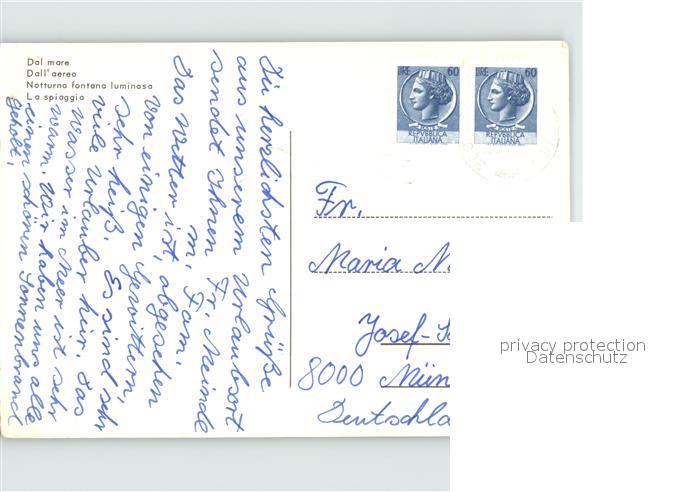 Dal mare
Dall'aereo
Notturno fontana luminosa
La spiaggia
Die herzlichsten Grüße
aus unserem Urlaubsort
sendet Ihnen Fr. Meindl
m. Fam.
Das Wetter ist, abgesehen
von einigen Gewittern,
sehr heiß. Es sind sehr
viele Urlauber hier. Das
Wasser im Meer ist sehr
warm. Wir haben uns alle
einen schönen Sonnenbrand
geholt.
LIRE 60
POSTE
REPVBBLICA
ITALIANA
LIRE 60
POSTE
REPVBBLICA
ITALIANA
Fr.
Maria
Josef-
8000 Mün
Deutschla
privacy protection
Datenschutz